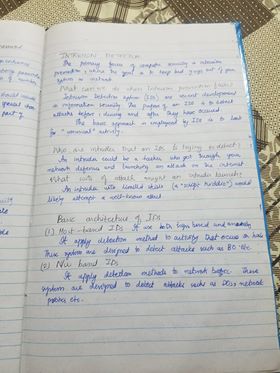 INTRUSION DETECTION
The primary focus of computer security is intrusion
prevention, where the goal is to keep bad guys out of your
system or network
What can we do when intrusion prevention fails?
Intrusion detection system (IDS) are recent development
in information security. The purpose of an IDS is to detect
attacks before, during and after they have occured
The basic approach is employed by IDS is to look
for "unusual" activity.
Who are intruders that an IDS is trying to detect?
An intruder could be a hacker who got through your
network defenses and launching an attack on the internet.
What sorts of attack might an intruder launch?
An intruder with limited skills (a "script kiddie") would
likely attempt a well-known attack
Basic architecture of IDS
(1) Host-based IDS It use both sign based and anomaly
It apply detection method to activity that occurs on host
These system are designed to detect attacks such as BO etc
(2) based IDS
It apply detection methods to network traffic. These
system are designed to detect attacks such as DOS, network
probes etc.